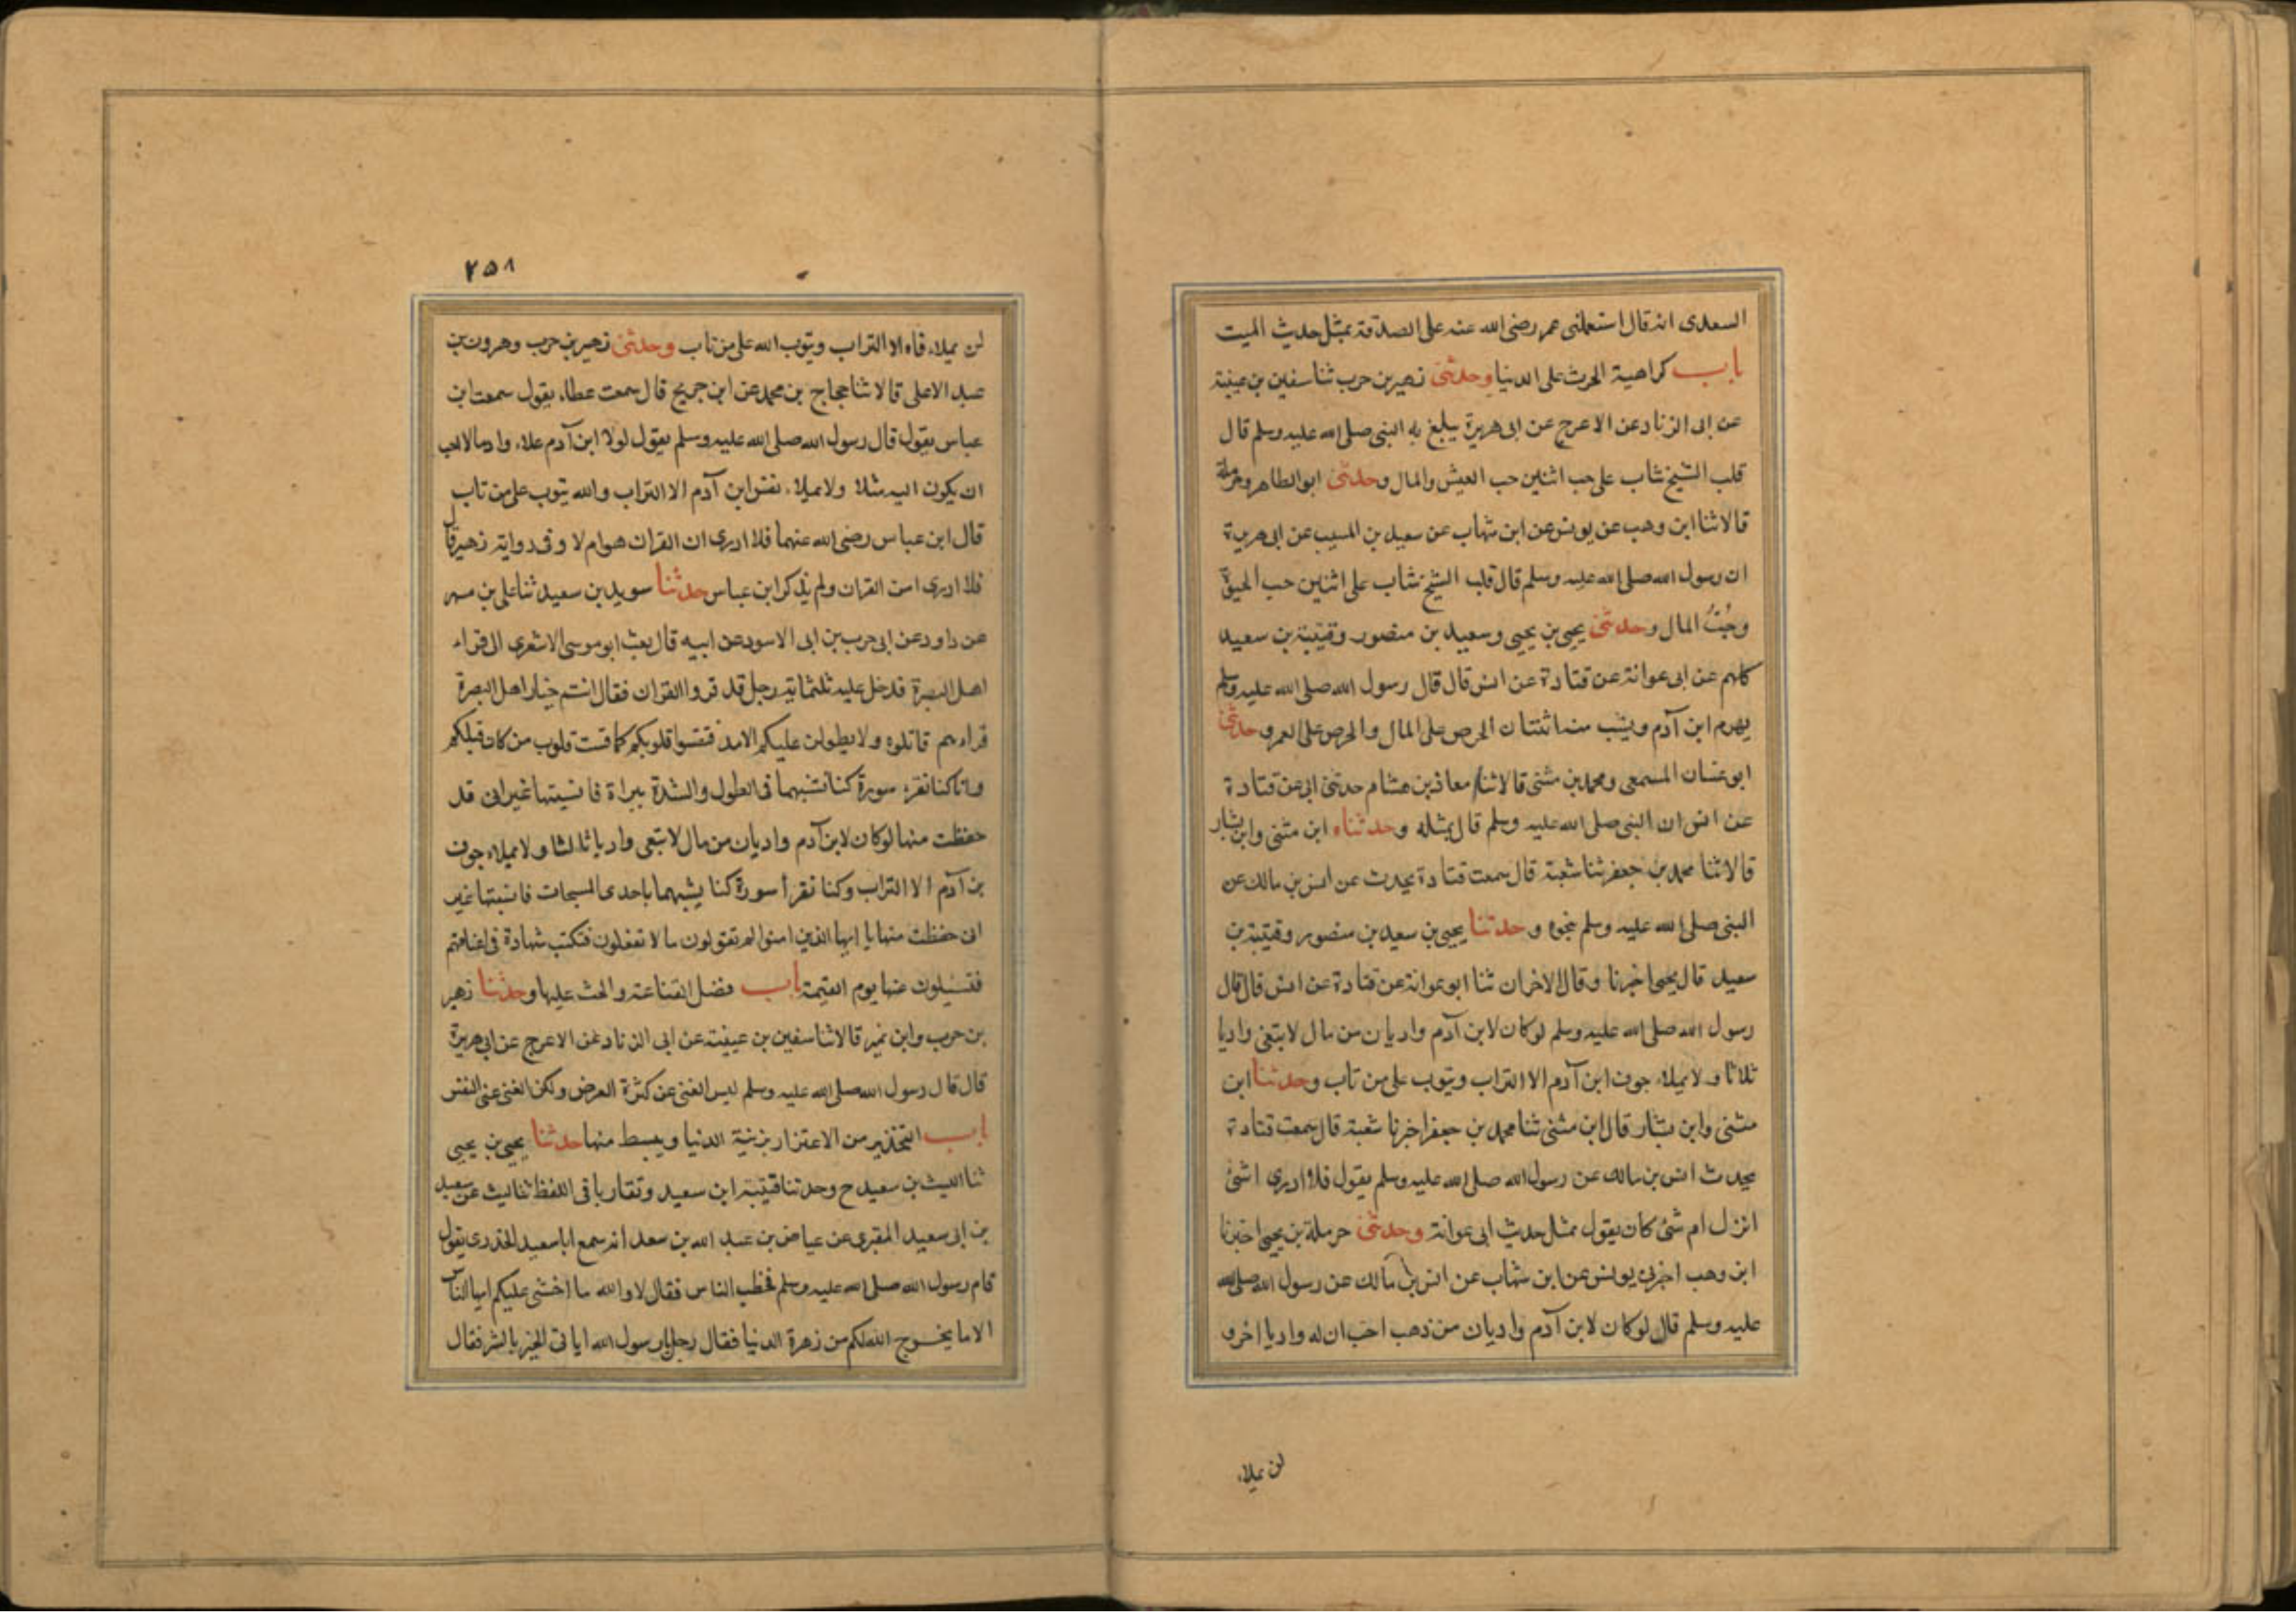 السعدى انه قال استعملنى عمر رضى الله عنه على الصدقة بمثل حديث الليث
باب كراهية الحرث على الدنيا وحدثنى زهير بن حرب ثنا سفين بن عيينة
عن ابى الزناد عن الاعرج عن ابى هريرة يبلغ به النبى صلى الله عليه وسلم قال
قلب الشيخ شاب على حب اثنين حب العيش والمال وحدثنى ابو الطاهر وحرملة
قالا ثنا ابن وهب عن يونس عن ابن شهاب عن سعيد بن المسيب عن ابى هريرة
ان رسول الله صلى الله عليه وسلم قال قلب الشيخ شاب على اثنين حب الحيوة
وحُبُّ المال وحدثنى يحيى بن يحيى وسعيد بن منصور وقتيبة بن سعيد
كلهم عن ابى عوانة عن قتادة عن انس قال قال رسول الله صلى الله عليه وسلم
يهرم ابن آدم ويشب منه اثنتان الحرص على المال والحرص على العمر وحدثنى
ابو غسان المسمعى ومحمد بن مثنى قالا ثنا معاذ بن هشام حدثنى ابى عن قتادة
عن انس ان النبى صلى الله عليه وسلم قال بمثله وحدثناه ابن مثنى وابن بشار
قالا ثنا محمد بن جعفر ثنا شعبة قال سمعت قتادة يحدث عن انس بن مالك عن
النبى صلى الله عليه وسلم بنحوه وحدثنا يحيى بن سعيد بن منصور وقتيبة بن
سعيد قال يحيى اخبرنا وقال الاخران ثنا ابو عوانة عن قتادة عن انس قال قال
رسول الله صلى الله عليه وسلم لوكان لابن آدم واديان من مال لابتغى واديا
ثلاثا ولا يملاء جوف ابن آدم الا التراب ويتوب على من تاب وحدثنا ابن
مثنى وابن بشار قال ابن مثنى ثنا محمد بن جعفر اخبرنا شعبة قال سمعت قتادة
يحدث انس بن مالك عن رسول الله صلى الله عليه وسلم يقول فلا ادرى اشئ
انزل ام شئ كان يقول بمثل حديث ابى عوانة وحدثنى حرملة بن يحيى اخبرنا
ابن وهب اخبرنى يونس عن ابن شهاب عن انس بن مالك عن رسول الله صلى الله
عليه وسلم قال لوكان لابن آدم واديان من ذهب احب ان له واديا اخر و
لن يملاء
٢٥٨
لن يملاء فاه الا التراب ويتوب الله على من تاب وحدثنى زهير بن حرب وهرون بن
عبد الاعلى قالا ثنا حجاج بن محمد عن ابن جريج قال سمعت عطاء يقول سمعت ابن
عباس يقول قال رسول الله صلى الله عليه وسلم يقول لولا ابن آدم علاء وادما لاحب
ان يكون اليه مثلا ولا يملاء نفس ابن آدم الا التراب والله يتوب على من تاب
قال ابن عباس رضى الله عنهما فلا ادرى ان القران هوام لا وفى رواية زهير قال
فلا ادرى امن القران ولم يذكر ابن عباس حدثنا سويد بن سعيد ثنا على بن مسهر
عن داود عن ابى حرب بن ابى الاسود عن ابيه قال بعث ابو موسى الاشعرى الى قراء
اهل البصرة فدخل عليه ثلثماية رجل قد قروا القران فقال انتم خيار اهل البصرة
قراءهم فاتلوه ولا يطولن عليكم الامد فتقسوا قلوبكم كما قست قلوب من كان قبلكم
وانا كنا نقرء سورة كنا نشبهها فى الطول والشدة ببراة فانسيتها غير انى قد
حفظت منها لوكان لابن آدم واديان من مال لابتغى واديا ثالثا ولا يملاء جوف
بن آدم الا التراب وكنا نقرأ سورة كنا يشبهها باحدى المسبحات فانسيتها غير
انى حفظت منها يا ايها الذين امنوا لم تقولون ما لا تفعلون فتكتب شهادة فى اعناقهم
فتسئلون عنها يوم القيمة باب فضل القناعة والحث عليها وحدثنا زهير
بن حرب وابن نمير قالا ثنا سفين بن عيينة عن ابى الزناد عن الاعرج عن ابى هريرة
قال قال رسول الله صلى الله عليه وسلم ليس الغنى عن كثرة العرض ولكن الغنى غنى النفس
باب التحذير من الاعتزار بزينة الدنيا ويبسط منها حدثنا يحيى بن يحيى
ثنا الليث بن سعيد ح وحدثنا قتيبة ابن سعيد وتقاربا فى اللفظ ثنا ليث عن سعيد
بن ابى سعيد المقبرى عن عياض بن عبد الله بن سعد انه سمع ابا سعيد الخدرى يقول
قام رسول الله صلى الله عليه وسلم فخطب الناس فقال لا والله ما اخشى عليكم ايها الناس
الا ما يخرج الله لكم من زهرة الدنيا فقال رجل يا رسول الله ايا تى الخير بالشر فقال